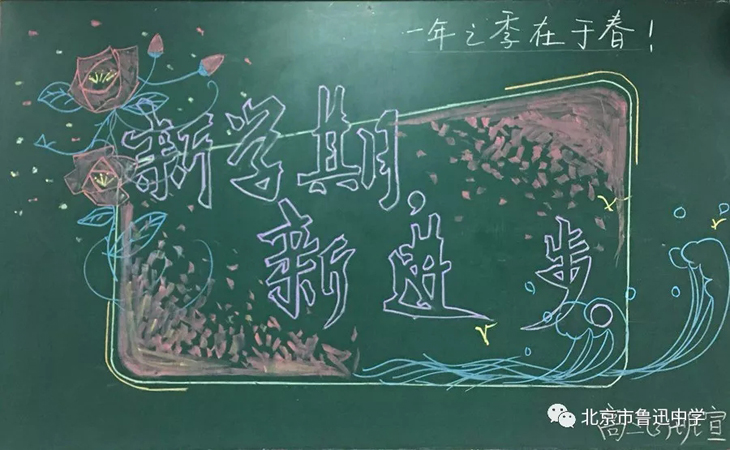 一年之季在于春!
新学期,
新进步
北京市鲁迅中学